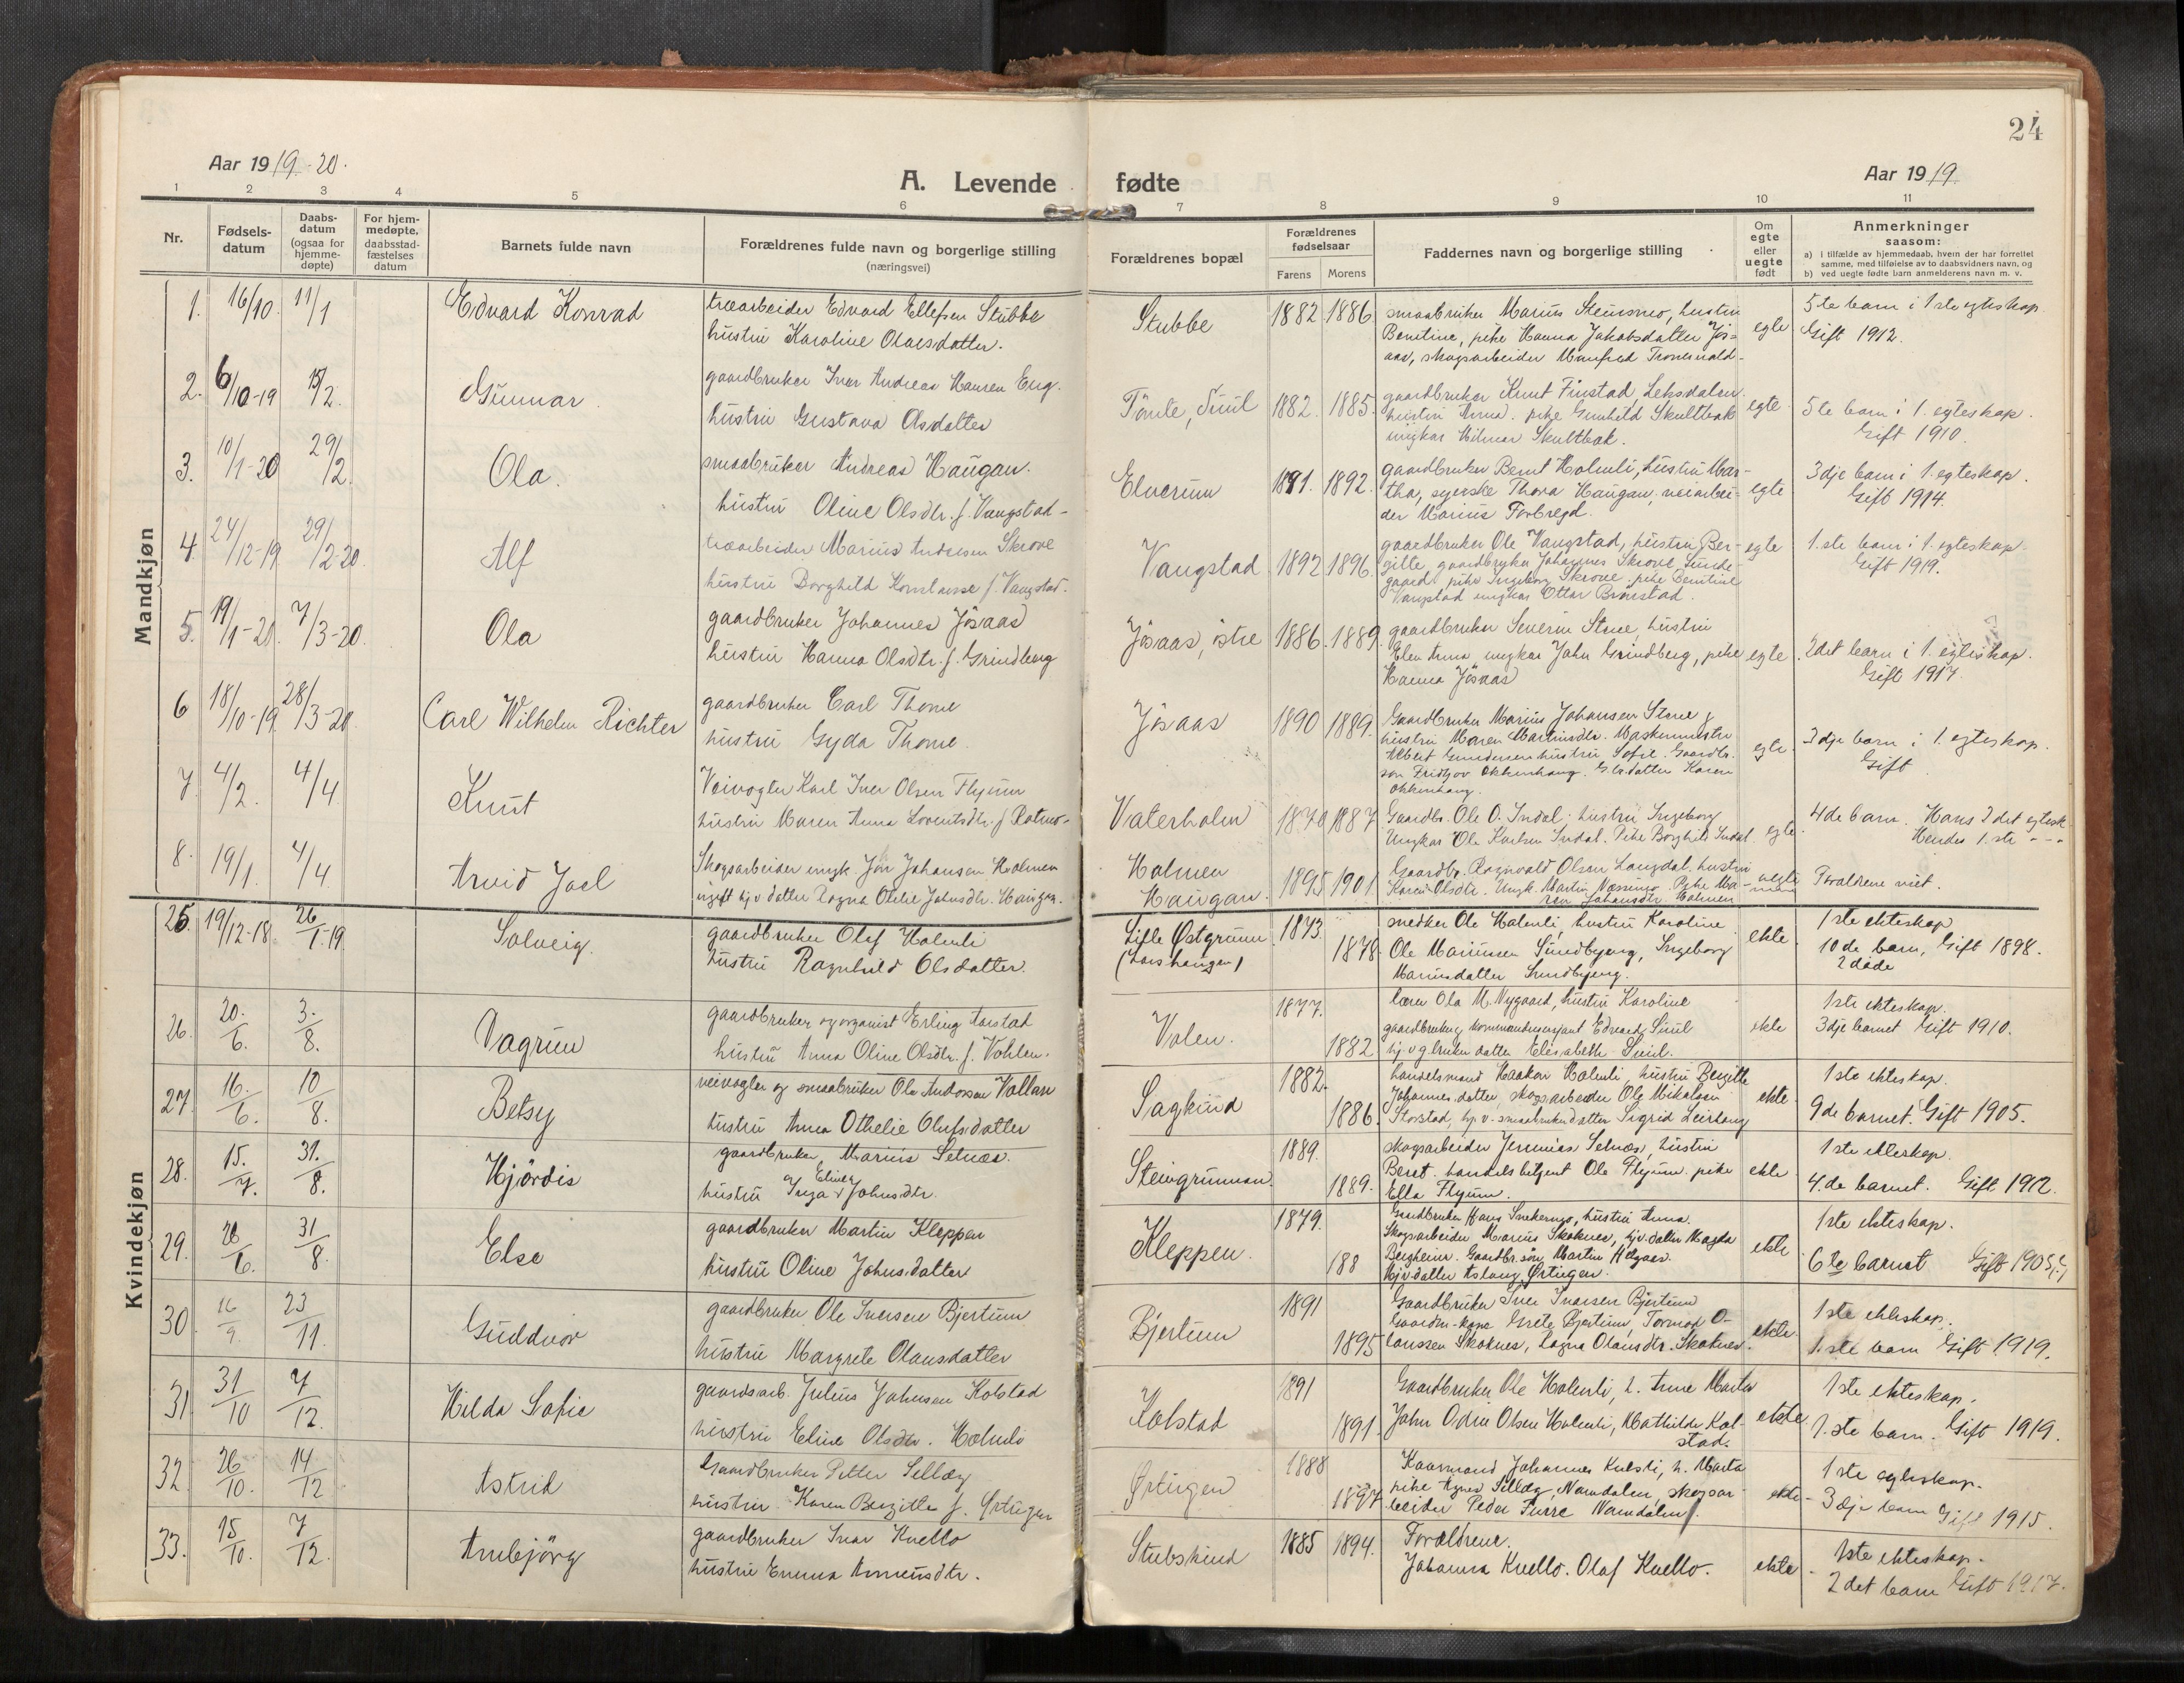 24
Aar 1919-20.
A. Levende fødte
Aar 1919
1 2 3 4 5 6 7 8 9 10 11
Nr.
Fødsels-datum
Daabs-datum (ogsaa for hjemme-døpte)
For hjem-medøpte, daabsstad-fæstelses datum
Barnets fulde navn
Forældrenes fulde navn og borgerlige stilling
(næringsvei)
Forældrenes bopæl
Forældrenes fødselsaar
Farens Morens
Faddernes navn og borgerlige stilling
Om egte eller uegte født
Anmerkninger
saasom:
a) i tilfælde av hjemmedaab, hvem der har forrettet samme, med tilføielse av to daabsvidners navn, og
b) ved uegte fødte barn anmelderens navn m. v.
Mandkjøn
1. 16/10 11/1 Edvard Konrad
træarbeider Edvard Ellefsen Stubbe
hustru Karoline Olaesdatter.
Stubbe 1882 1886
smaabruker Marius Steinsmo, hustru
Bentine, pike Hanna Jakobsdatter Jös-
aas, skogsarbeider Manfred
egte
5te barn i 1ste egteskap
Gift 1912.
2. 6/10-19 15/2. Gunnar
gaardbruker Iver Andreas Hansen Eng.
hustru Gustava Olsdatter
Tömte, Suul 1882. 1885.
gaardbruker Knut Finstad, Leksdalen
hustru Anna. pike Gunhild Skultbak
ungkar Hilmar Skultbak.
egte
5te barn i 1. egteskap.
Gift 1910.
3. 10/1-20 29/2. Ola.
smaabruker Andreas Haugan.
hustru Oline Olsdtr. f. Vangstad-
Elverum 1891. 1892.
gaardbruker Bernt Holmli, hustru Mar-
tha, syerske Thora Haugan, veiarbei-
der Marius Forbregd.
egte
3dje barn i 1. egteskap.
Gift 1914.
4. 24/12-19. 29/2-20 Alf
træarbeider Marius Andersen Skrove
hustru Borghild Konstanse f. Vangstad.
Vangstad 1892 1896.
gaardbruker Ole Vangstad, hustru Ber-
gitte, gaardbruker Johannes Skrove, Sunde-
gaard, pike Ingeborg Skrove, pike Bentine
Vangstad ungkar Ottar
egte
1.ste barn i 1. egteskap
Gift 1919.
5. 19/1-20. 7/3-20. Ola
gaardbruker Johannes Jösaas
hustru Hanna Olsdtr. f. Grindberg
Jösaas, östre 1886. 1889.
gaardbruker Severin Stene, hustru
Elen Anna, ungkar John Grindberg, pike
Hanna Jösaas
egte
2det barn i 1. egteskap.
Gift 1917.
6 18/10-19. 28/3-20. Carl Wilhelm Richter
gaardbruker Carl Thome
hustru Gyda Thome.
Jösaas 1890 1889.
Gaardbruker Marius Johansen Stene &
hustru Maren Martinsdtr. Maskinmester
Albert Gundersen hustru Sofie. Gaardbr.
søn Fridtjov Okkenhaug. G.br.datter Karen
Okkenhaug.
egte
3dje barn i 1. egteskap.
Gift
7 4/2. 4/4 Knut
Veivogter Karl Iver Olsen Flyum
hustru Maren Anna Lorentsdtr. f.
Vaterholm 1870 1887
Gaardbr. Ole O. Indal, hustru Ingeborg
Ungkar Ole Karlsen Indal. Pike Borghild Indal.
egte
4de barn. Hans 2det egtesk.
Hendes 1.ste - - -
8. 19/1. 4/4. Arvid Joel
Skogsarbeider ungk. Jon Johansen Holmen
ugift hj.v datter Ragna Otelie Johnsdtr. Haugan.
Holmen
Haugan 1895 1901
Gaardbr. Ragnvald Olsen Langdal. hustru
Karen Olsdtr. Ungk. Martin Næssmo Pike Ma-
ren Johansdtr. Holmen
uegte
Forældrene viet.
Kvindekjøn
25. 19/12-18. 26/1-19. Solveig.
gaardbruker Olaf Holmli
hustru Ragnhild Olsdatter.
Lille Østgrunn
(Larshaugen) 1873. 1878.
snedker Ole Holmli, hustru Karoline
Ole Mariussen Sundbyeng, Ingeborg
Mariusdatter Sundbyeng.
ekte
1ste ekteskap
10de barn, Gift 1898.
2 döde
26. 20./6. 3./8. Dagrun
gaardbruker og organist Erling Aarstad
hustru Anna Oline Olsdtr. f. Vohlen.
Volen. 1877. 1882
lærer Ola M. Nygaard, hustru Karoline
gaardbruker kommandersersjant Edvard Suul
hj.v g.bruker datter Elisabeth Suul.
ekte
1ste ekteskap.
3dje barnet Gift 1910.
27. 16./6. 10/8. Betsy
veivogter og smaabruker Ole Andersen Vollan
hustru Anna Othelie Olufsdatter
Sagkind 1882. 1886.
handelsmand Haakon Holmli, hustru Bergitte
Johannesdatter, skogsarbeider Ole Mikalsen
Storstad, hj.v. smaabrukerdatter Sigrid Leirhaug
ekte
1ste ekteskap.
9de barnet. Gift 1905.
28. 15./7. 31./8. Hjördis
gaardbruker, Marius Selnæs.
hustru Inga Eline Johnsdtr.
Steingrunnan. 1889. 1889.
skogsarbeider Jeremias Selnæs, hustru
Beret. handelsbetjent Ole Flyum. pike
Ella Flyum.
ekte
1ste ekteskap.
4.de barnet. Gift 1912.
29. 28/6. 31/8. Else
gaardbruker Martin Kleppen
hustru Oline Johnsdatter
Kleppen. 1879. 188
Gaardbruker Hans Snekermo, hustru Anna.
Skogsarbeider Marius Skoknes, hj.v datter Magda
Bergheim. Gaardbr. søn Martin Helgaas.
Hj.v datter Aslaug Ørtugen.
ekte
1ste ekteskap.
6te barnet Gift 1905(?)
30. 16/9. 23/11. Guddvor
gaardbruker Ole Iversen Bjertum
hustru Margrete Olausdatter
Bjertum 1891 1895
Gaardbruker Iver Ivarsen Bjertum
Gaardm.kone Grete Bjertum, Tormod O-
laussen Skoknes, Ragna Olausdtr. Skoknes.
ekte.
1ste ekteskap.
1.ste barn Gift 1919.
31. 31/10 7/12. Hilda Sofie
gaardsarb. Julius Johnsen Kolstad
hustru Eline Olsdtr. Holmli
Kolstad 1891 1891.
Gaardbruker Ole Holmli, h. Anne Marta
John Odin Olsen Holmli, Mathilde Kol-
stad.
ekte
1ste ekteskap.
1.ste barn. Gift 1919.
32. 26/10. 14/12 Astrid
Gaardbruker Petter Selläg
hustru Karen Bergitte f. Ørtugen
Ørtugen 1888 1897.
Kaarmand Johannes Kulsli, h. Marta
pike Agnes Selläg, Namdalen, skogsar-
beider Peder Furre Namdalen.
ekte
1ste egteskap.
3dje barn Gift 1915.
33. 15/10. 7/12. Anbjörg
gaardbruker Ivar Kvello
hustru Emma Arneusdtr.
Stubskind 1885 1894.
Forældrene.
Johanna Kvello. Olaf Kvello.
ekte
1ste ekteskap.
2det barn Gift 1917.